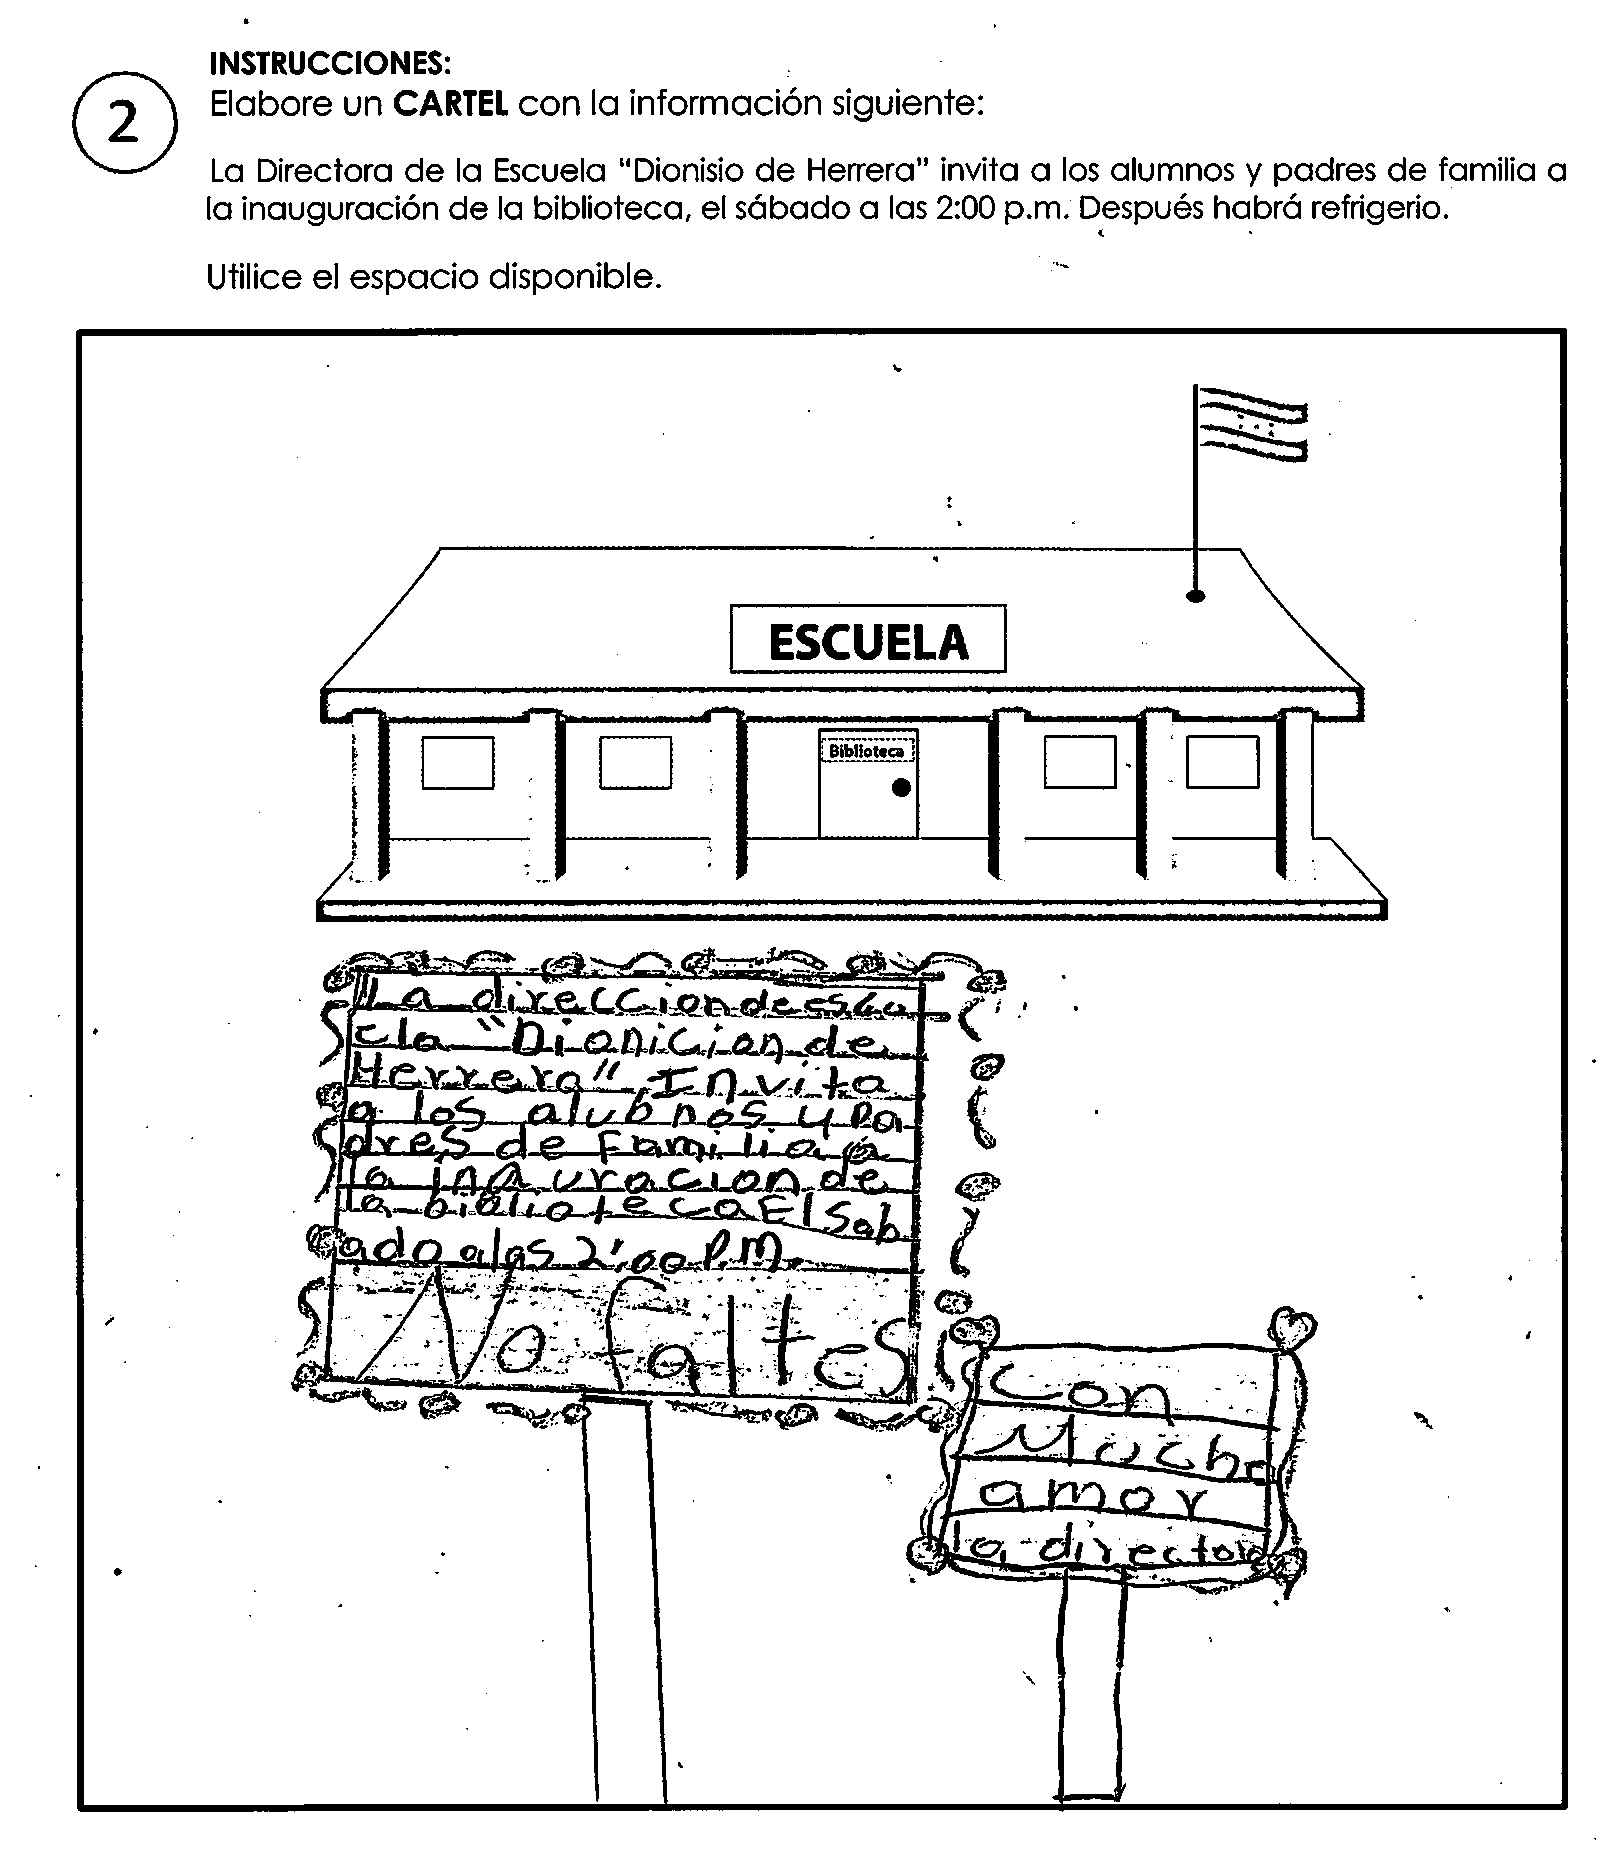 INSTRUCCIONES:
2
Elabore un CARTEL con la información siguiente:
La Directora de la Escuela “Dionisio de Herrera” invita a los alumnos y padres de familia a
la inauguración de la biblioteca, el sábado a las 2:00 p.m. Después habrá refrigerio.
Utilice el espacio disponible.
ESCUELA
Biblioteca
La direccion de escu
ela "Dionicion de
Herrera" Invita
a los alubnos y Pa
dres de Familia a
la inauracion de
la biblioteca El Sab
ado a las 2:00 P.M.
No faltes
con
Mucho
amor
la directora